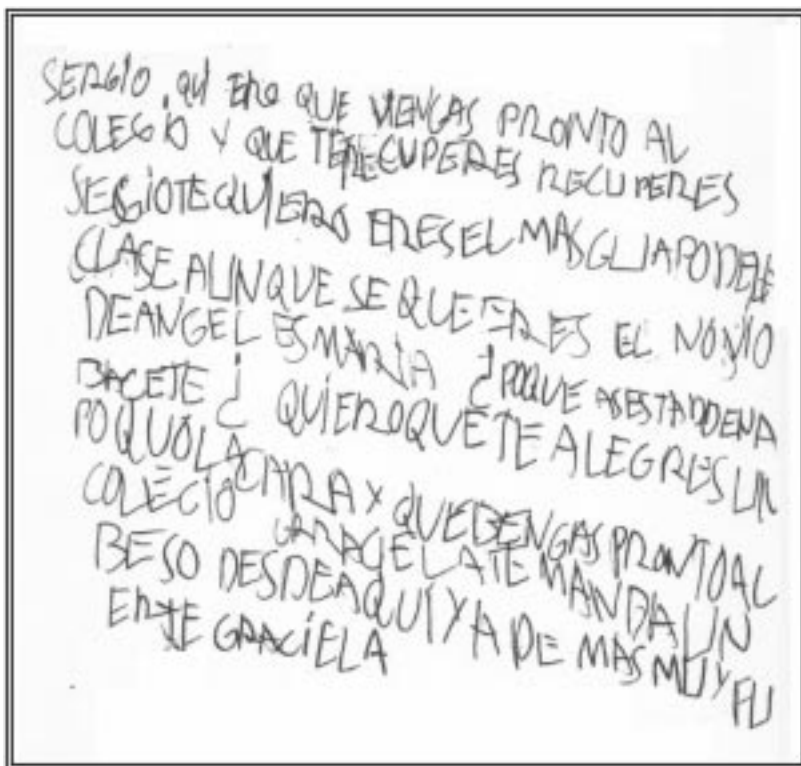 SERGIO, QUIERO QUE VIENGAS PRONTO AL
COLEGIO Y QUE TE RECUPERES RECUPERES
SERGIO TE QUIERO ERES EL MAS GUAPO DE LE
CLASE AUNQUE SE QUE ERES EL NOVIO
DE ANGELES MARIA ¿POQUE AS ESTADO EN A
BACETE ¿ QUIERO QUE TE ALEGRES UN
POQUO LA CARA Y QUE BENGAS PRONTO AL
COLEGIO GRACIELA TE MANDA UN
BESO DESDE AQUÍ Y A DE MAS MUY FU
ERTE GRACIELA